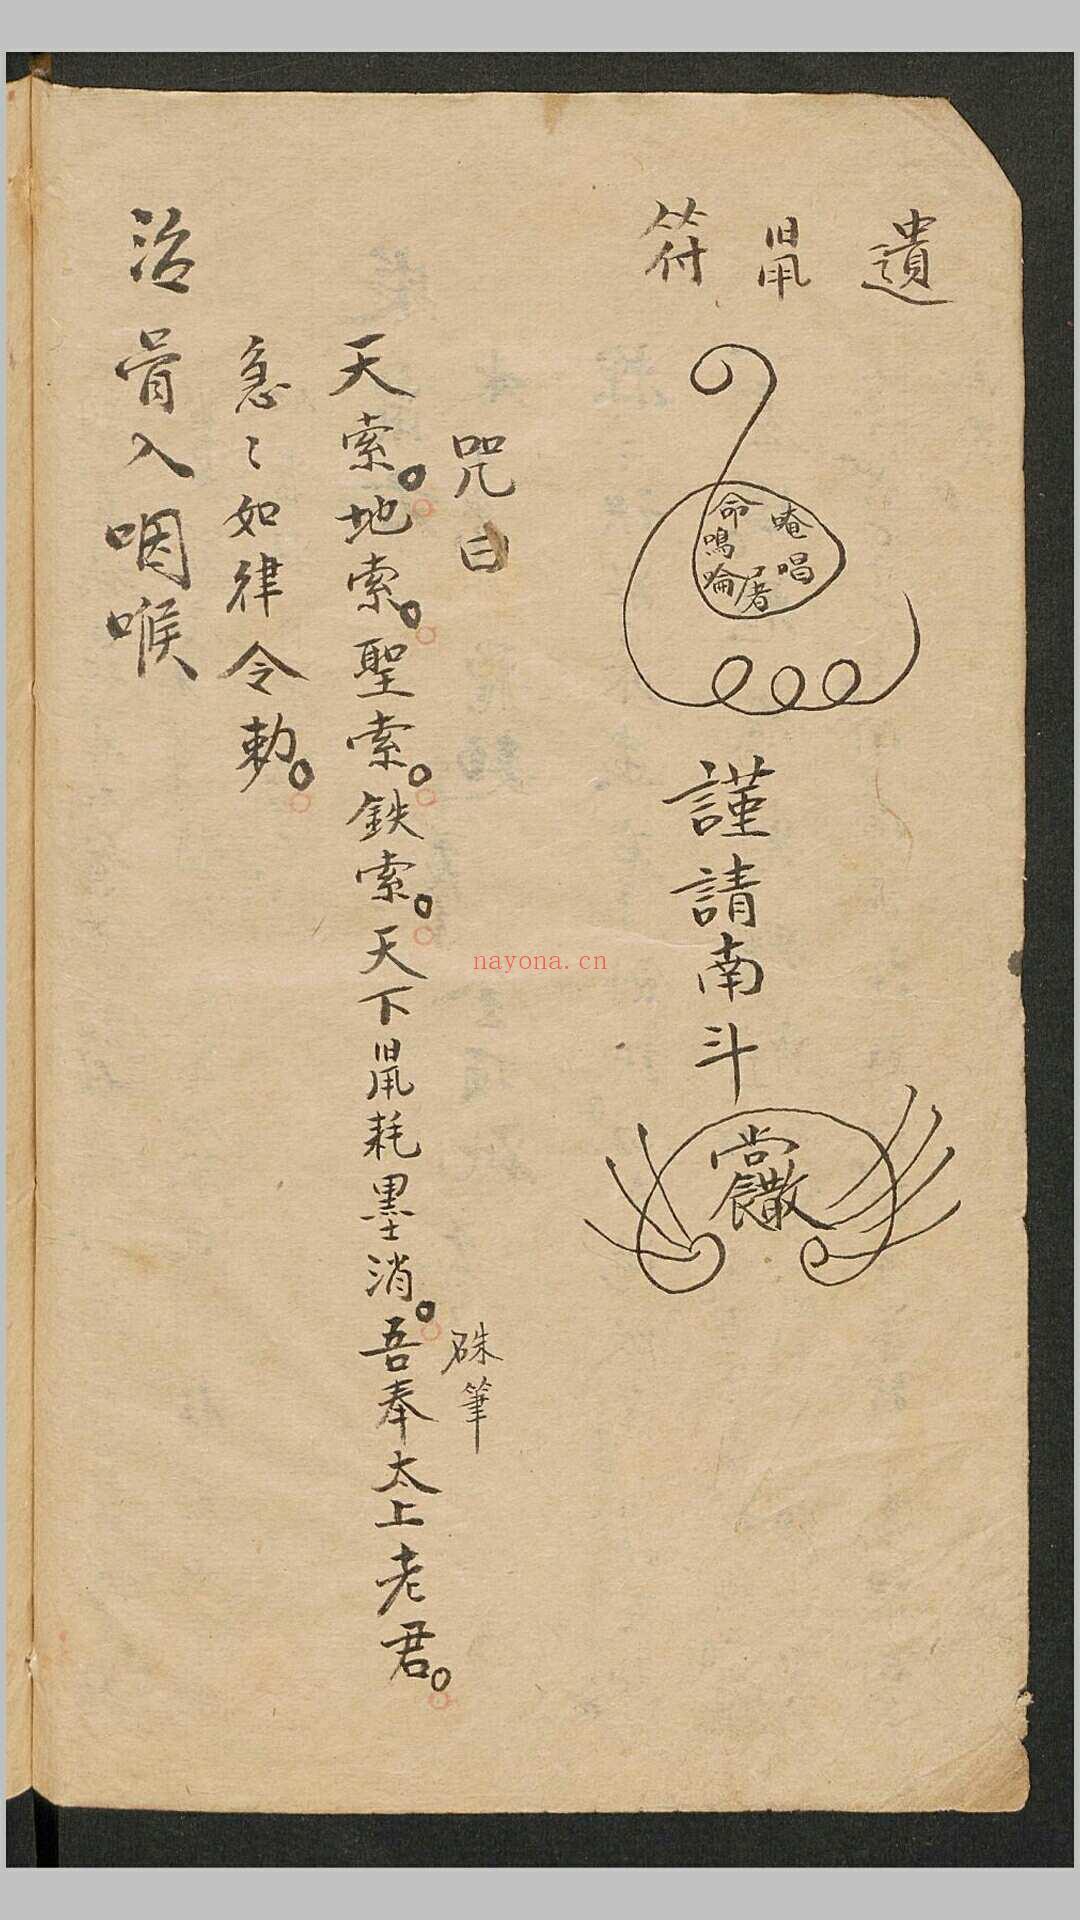 遺鼡符
唵唱
命鳴㖮
謹請南斗
咒曰
硃筆
天索。地索。聖索。鉄索。天下鼡耗墨消。吾奉太上老君。
急〻如律令勅。
治骨入咽喉
nayona.cn